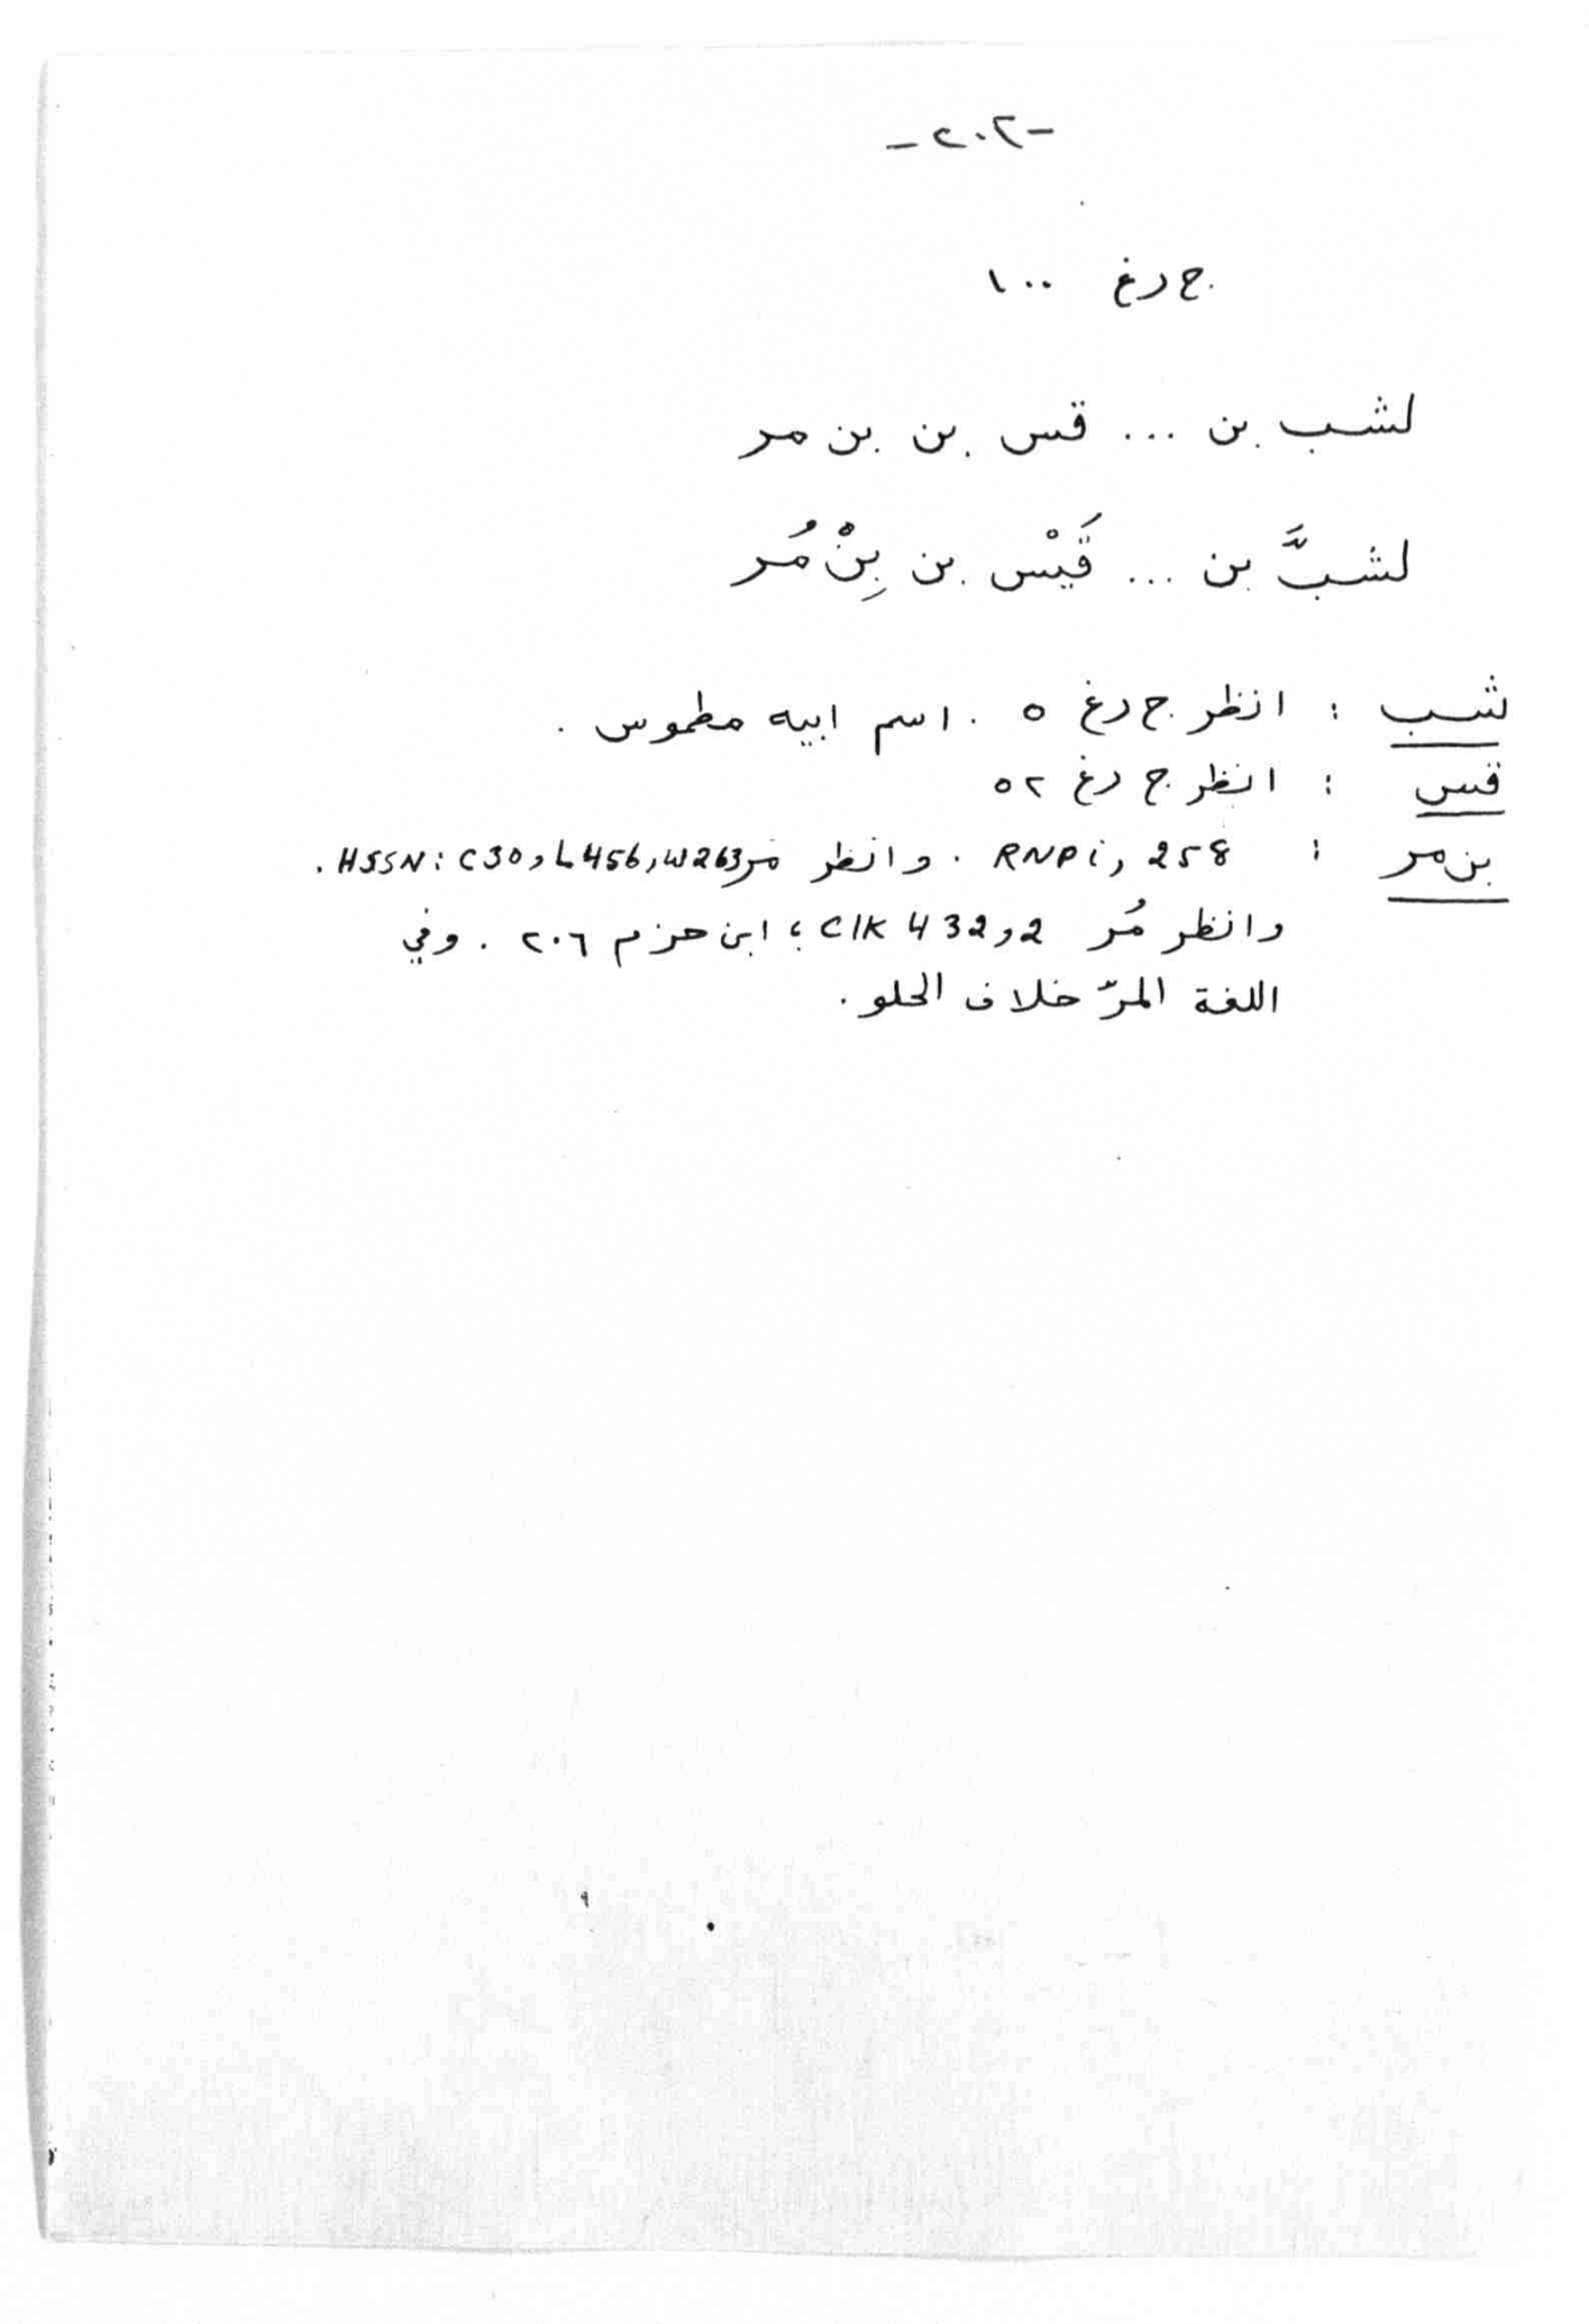 -٢٠٢-
ج رغ ١٠٠
لشب بن ... قس بن بن مر
لشبَّ بن ... قَيْس بن بِنْ مُر
شب : انظر ج رغ ٥ . اسم ابيه مطموس .
قس : انظر ج رغ ٥٢
بن مر : RNP i, 258 . وانظر مر HSSN: C30, L456, W263 .
وانظر مُر CIK 432,2 ؛ ابن حزم ٢٠٦ . وفي
اللغة المرّ خلاف الحلو .